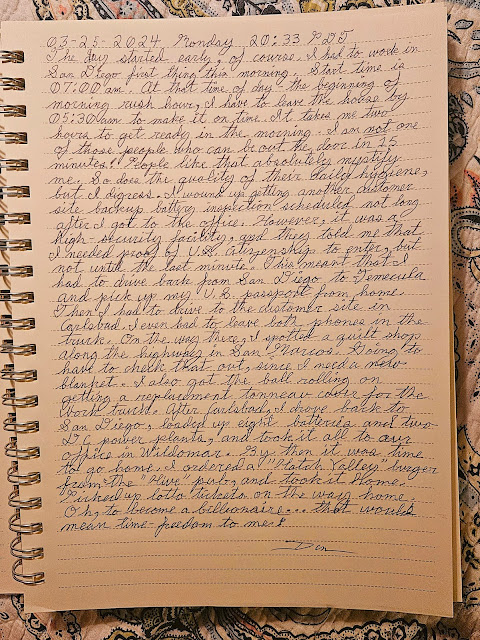 03-25-2024 Monday 20:33 PDT
The day started early, of course. I had to work in
San Diego first thing this morning. Start time is
07:00am. At that time of day the beginning of
morning rush hour, I have to leave the house by
05:30am to make it on time. It takes me two
hours to get ready in the morning. I am not one
of those people who can be out the door in 15
minutes!! People like that absolutely mystify
me. So does the quality of their daily hygiene,
but I digress. I wound up getting another customer
site backup battery inspection scheduled not long
after I got to the office. However, it was a
high-security facility, and they told me that
I needed proof of U.S. citizenship to enter, but
not until the last minute. This meant that I
had to drive back from San Diego to Temecula
and pick up my U.S. passport from home.
Then I had to drive to the customer site in
Carlsbad. I even had to leave both phones in the
truck. On the way there, I spotted a quilt shop
along the highway in San Marcos. Going to
have to check that out, since I need a new
blanket. I also got the ball rolling on
getting a replacement tonneau cover for the
work truck. After Carlsbad, I drove back to
San Diego, loaded up eight batteries and two
DC power plants, and took it all to our
office in Wildomar. By then it was time
to go home. I ordered a "Hatch Valley" burger
from the "Hive" pub, and took it home.
Picked up lotto tickets on the way home.
Oh, to become a billionaire... that would
mean time-freedom to me!